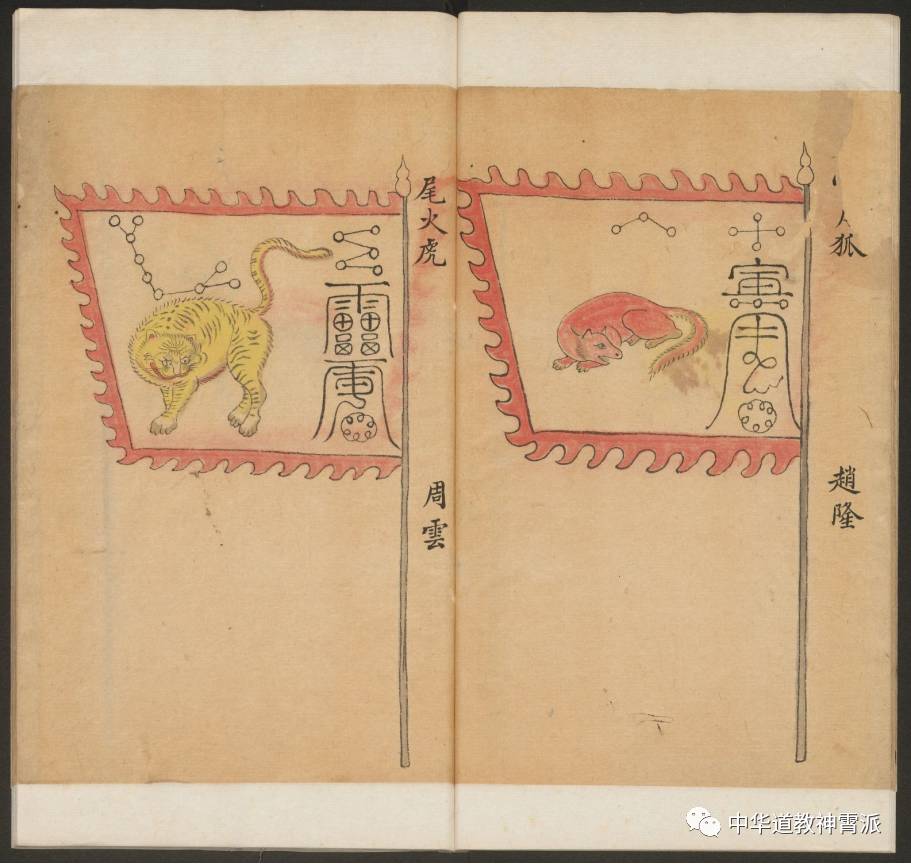 狐
趙隆
尾火虎
周雲
中华道教神霄派